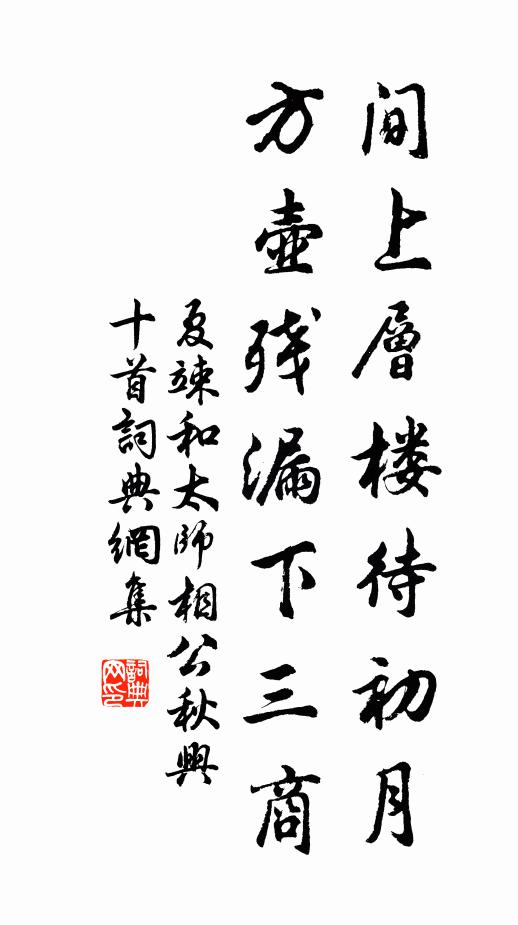 间上層楼待初月
方壺残漏下三商
夏竦和太师相公秋興
十首詞典網集
詞典网印